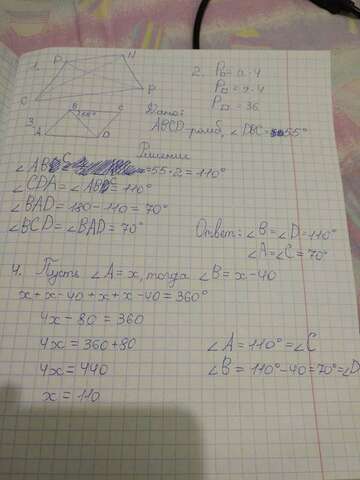 1.
P
N
C
P
2. P▱ = a · 4
P▱ = 9 · 4
P▱ = 36
3.
B
C
A
D
Дано:
ABCD - ромб, ∠DBC = 55°
Решение
∠ABC = 55 · 2 = 110°
∠CDA = ∠ABC = 110°
∠BAD = 180 - 110 = 70°
∠BCD = ∠BAD = 70°
Ответ: ∠B = ∠D = 110°
∠A = ∠C = 70°
4. Пусть ∠A = x, тогда ∠B = x - 40
x + x - 40 + x + x - 40 = 360°
4x - 80 = 360
4x = 360 + 80
4x = 440
x = 110
∠A = 110° = ∠C
∠B = 110° - 40 = 70° = ∠D